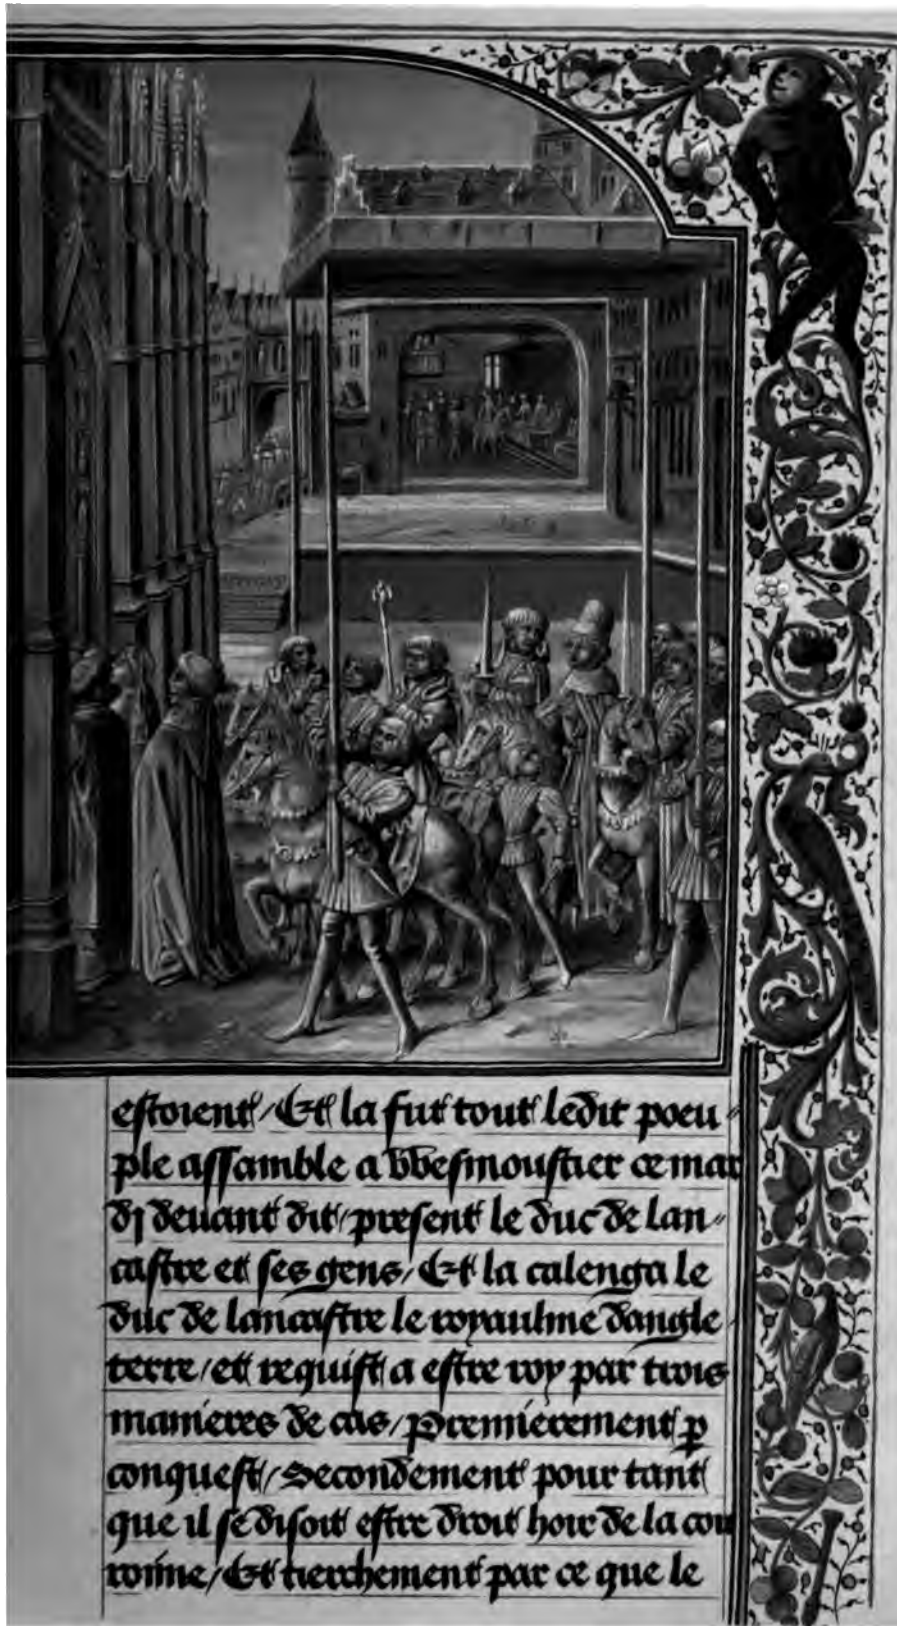 estoient / Et la fut tout ledit poeu〃
ple assamble a wesmoustier ce mar
dj deuant dit / present le duc de lan〃
castre et ses gens / Et la calenga le
duc de lancastre le royaulme dangle
terre / et requist a estre roy par trois
manieres de cas / Premierement ꝑ
conquest / Secondement pour tant
que il se disoit estre droit hoir de la cou
ronne / Et tierchement par ce que le